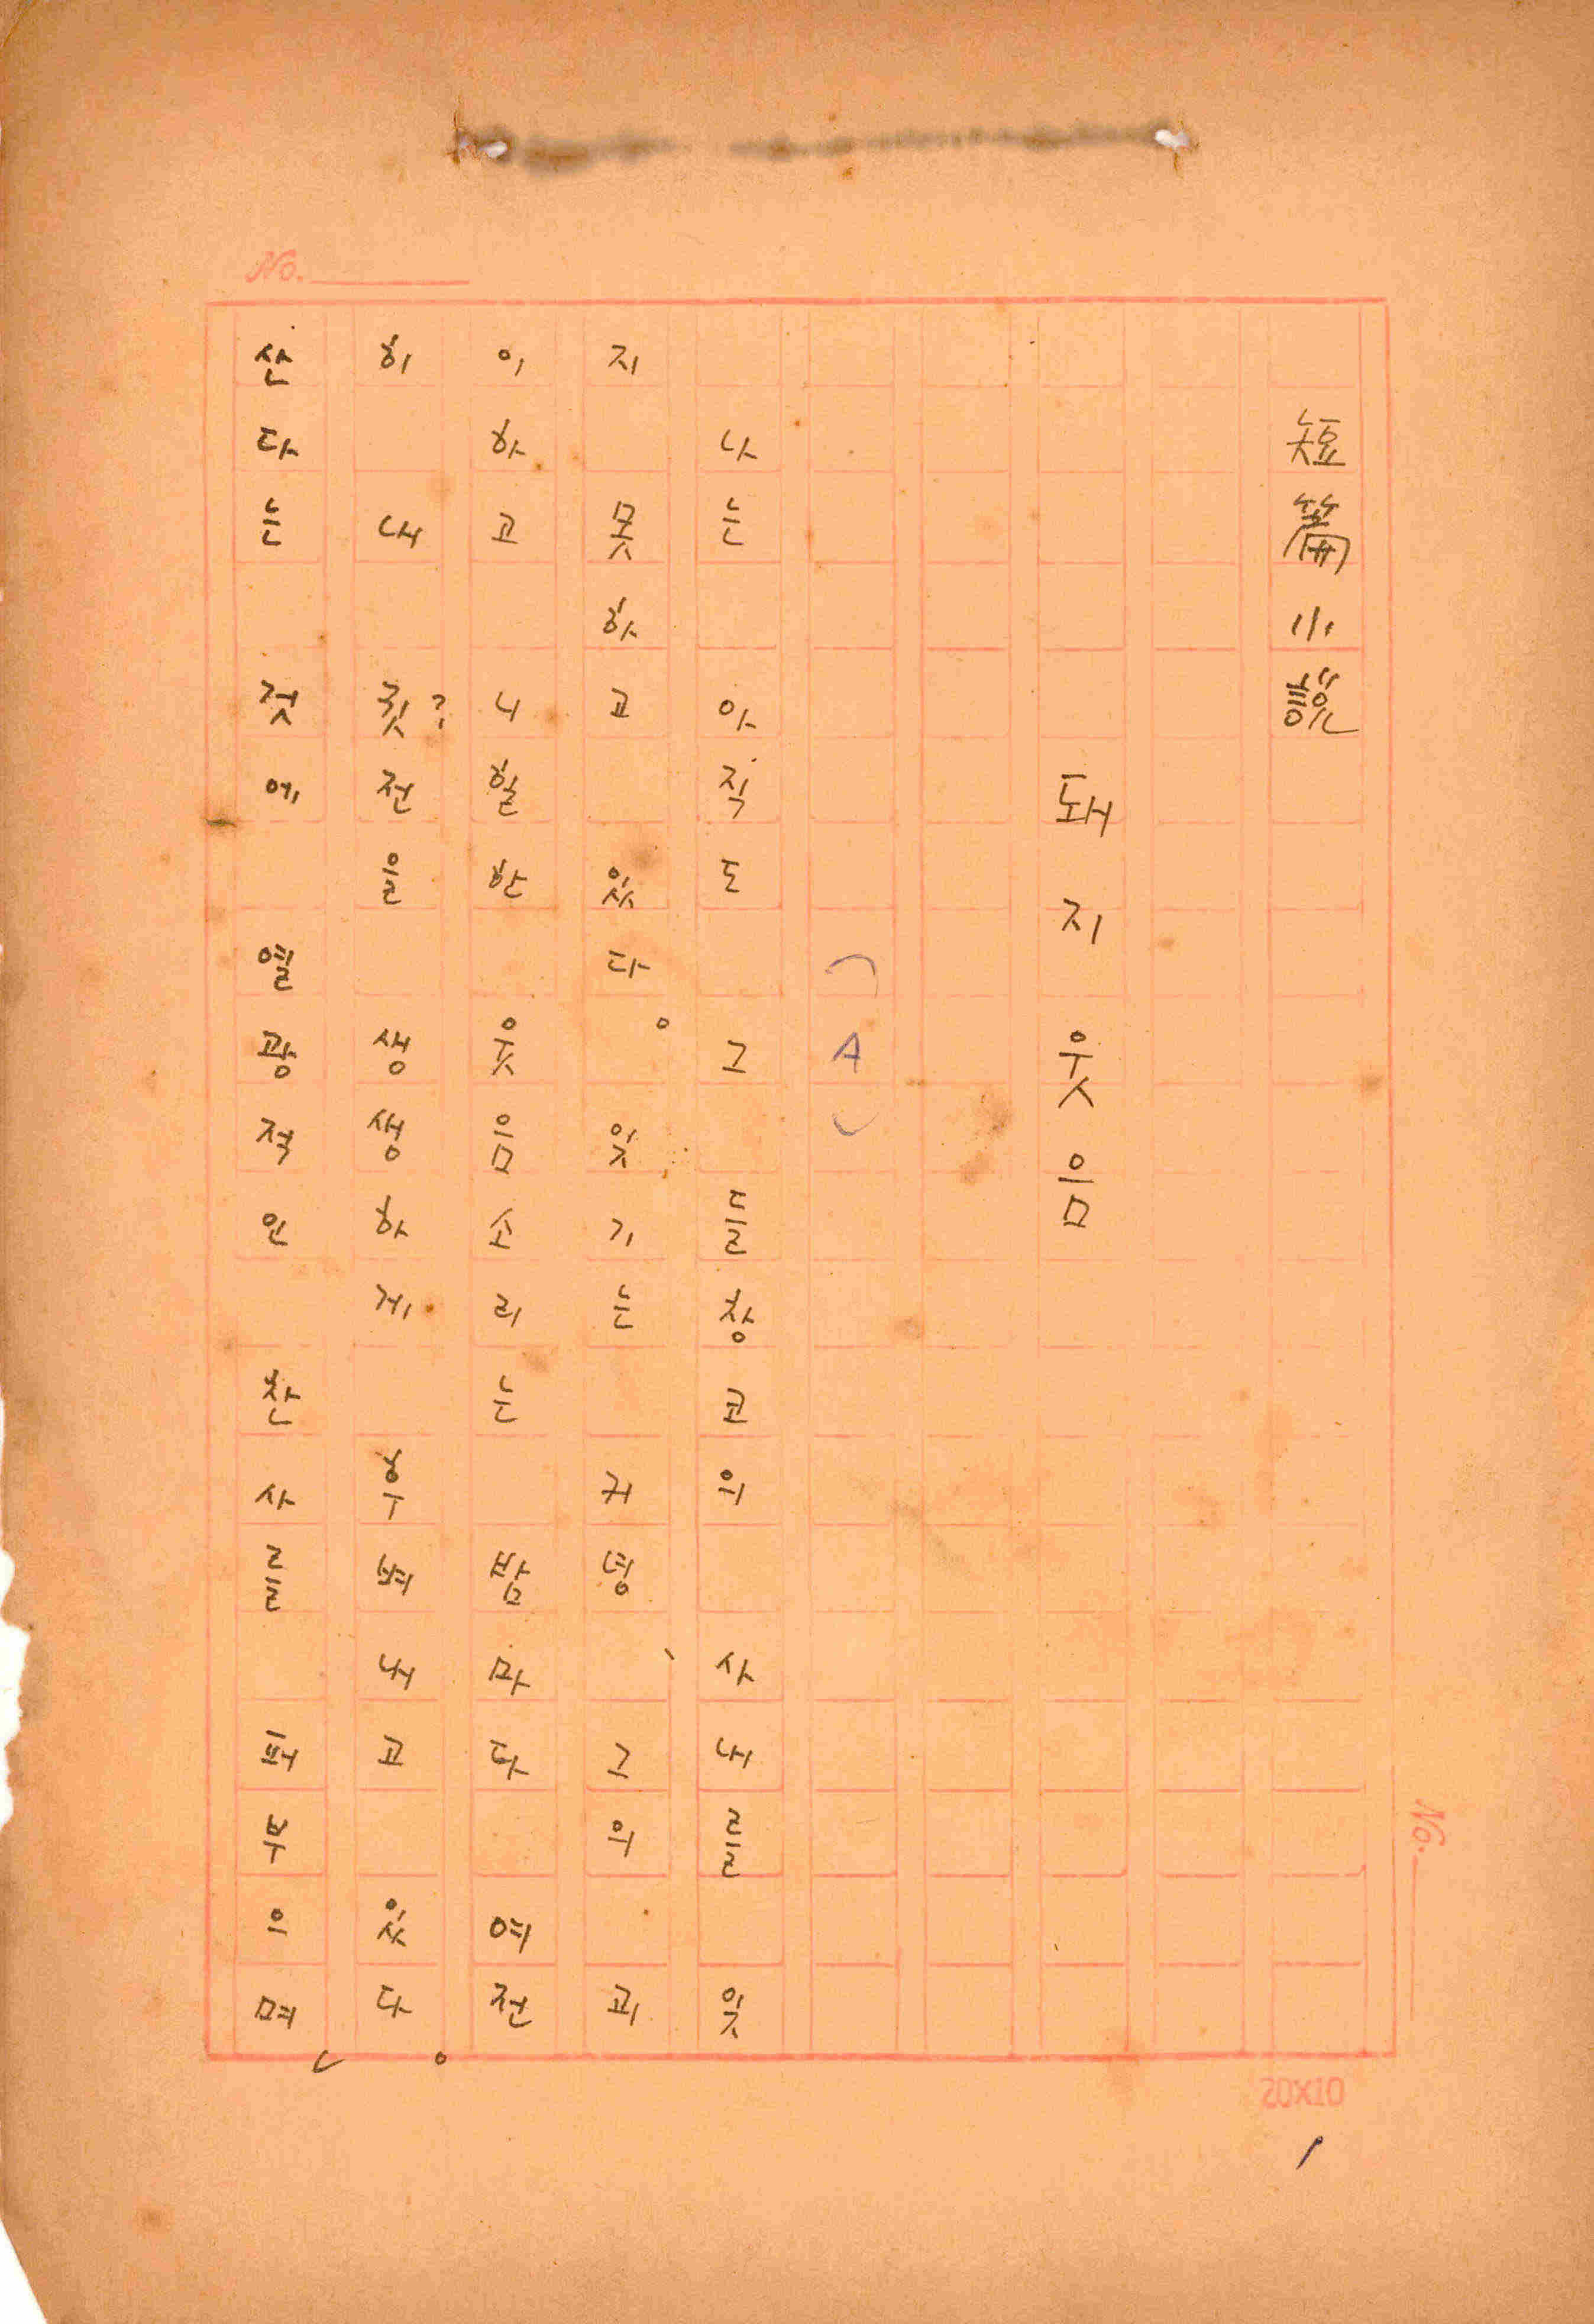 No.
短篇小說
돼지웃음
(A)
나는 아직도 그 들창코의 사내를 잊
지 못하고 있다。 잊기는 커녕、 그의 괴
이하고 니힐한 웃음소리는 밤마다 여전
히 내 귓?전을 생생하게 후벼내고 있다。
산다는 것에 열광적인 찬사를 퍼부으며、
No.
20X10
1